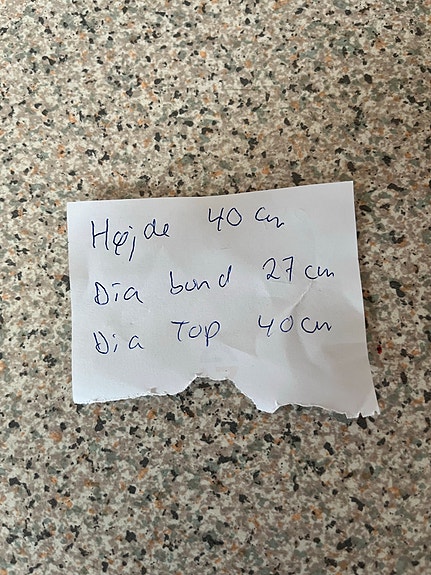 Højde 40 cm
Dia bund 27 cm
Dia Top 40 cm